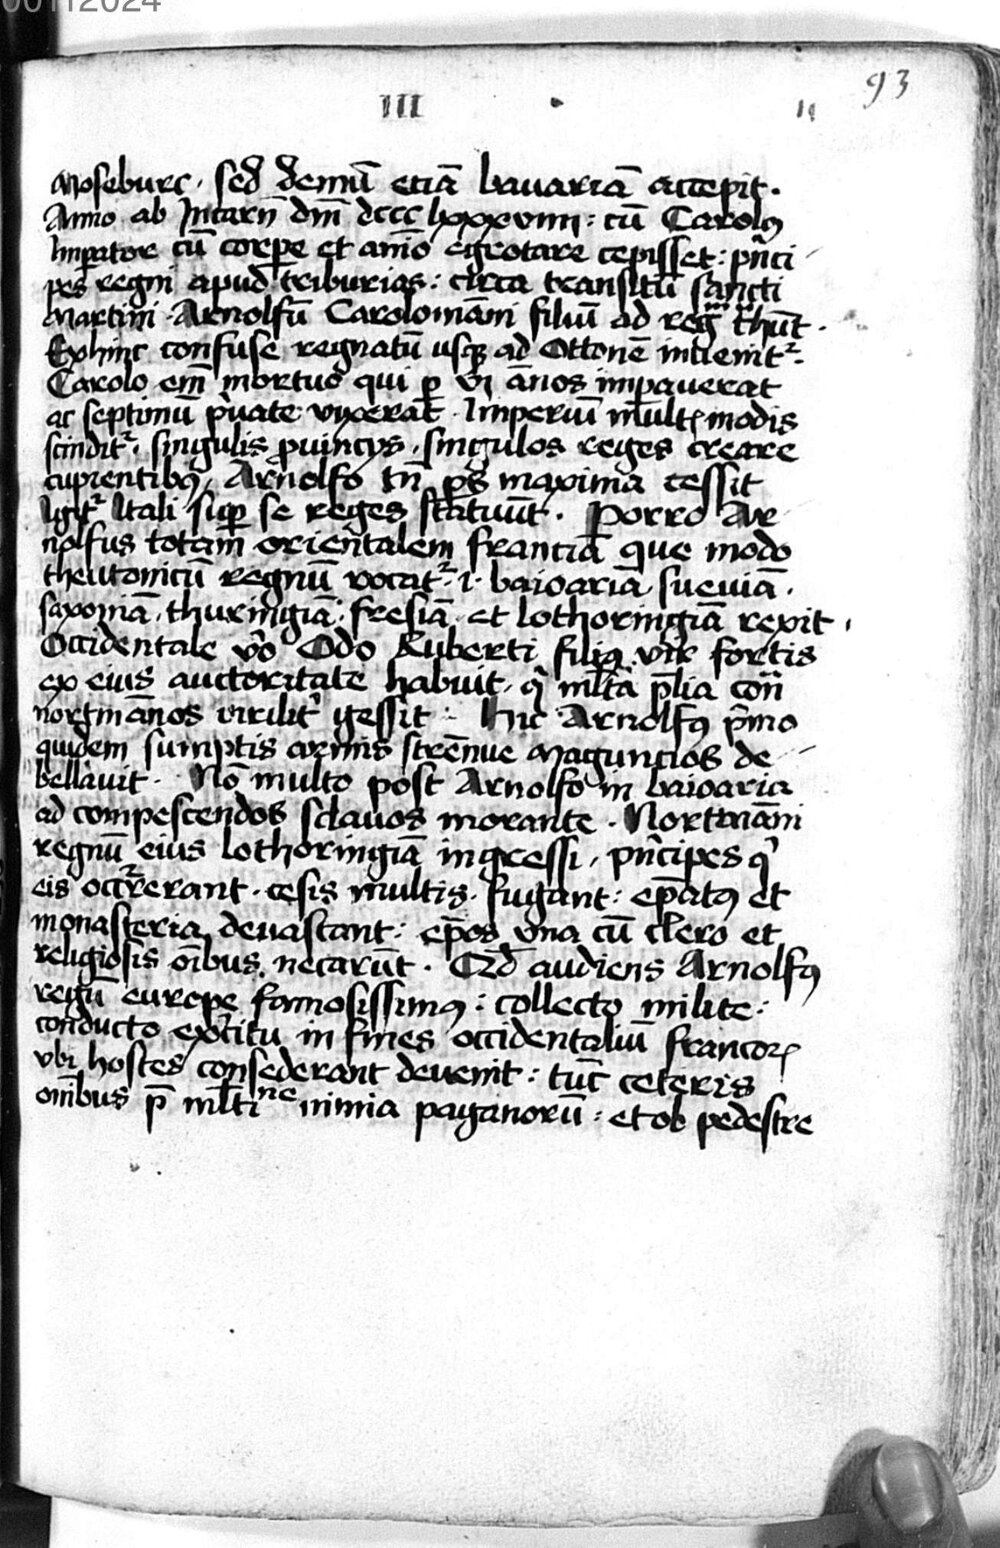 00112024
93
III
II
Moseburc · sed demū etiā bavariā accepit ·
Anno ab Incarn̄ dm̄ dccc lxxxviiii : cū Carolꝰ
Imperatore cū corꝑe et aīo egrotare cepisset : pn̄ci
pes regni apud triburias : circa transitū sancti
Martini Arnolfū Carolomāni filiū ad regm̄ t̄hūt ·
Exhinc confuse regnatū usqꝫ ad Ottonē invenitᷣ ·
Carolo em̄ mortuo qui ꝑ vi ānos impaverat
ac septimū p̄vate vixerat · Imperiū mult̄ modis
scinditᷣ · singulis ꝓvincijs · singulos reges creare
cupientibꝰ · Arnolfo tn̄ ꝑs maxima cessit
Igitᷣ Itali suꝑ se reges statuūt · Porro Ar
nolfus totam orientalem franciā que modo
theutonicū regnū vocatᷣ · i · baioariā sueviā ·
saxoniā · thuringiā · fresiā · et lothoringiā rexit ·
Occidentale v̊o Odo Ruberti filiꝰ vir fortis
ex eius auctoritate habuit · qͥ ml̄ta p̄lia con̄
nortmānos viriliṫ gessit · Hic Arnolfꝰ p̄mo
quidem sumptis armis strēnue Maguncios de
bellavit · Nō multo post Arnolfo in baioaria
ad compescendos sclavos morante · Nortmāni
regnū eius lothoringiā ingressi · pn̄cipes qͥ
eis occᷣrerant · cesis multis · fugant : ep̄atꝰ et
monasteria devastant : ep̄os una cū clero et
religiosis oībus necarūt · Qd̄ audiens Arnolfꝰ
regū europe famosissimꝰ : collecto milite :
conducto ex̄citu in fines occidentaliū francoꝝ
ubi hostes consederant devenit : tūc ceteris
om̄ibus p̄ ml̄tine nimia paganorū : et ob pedestre